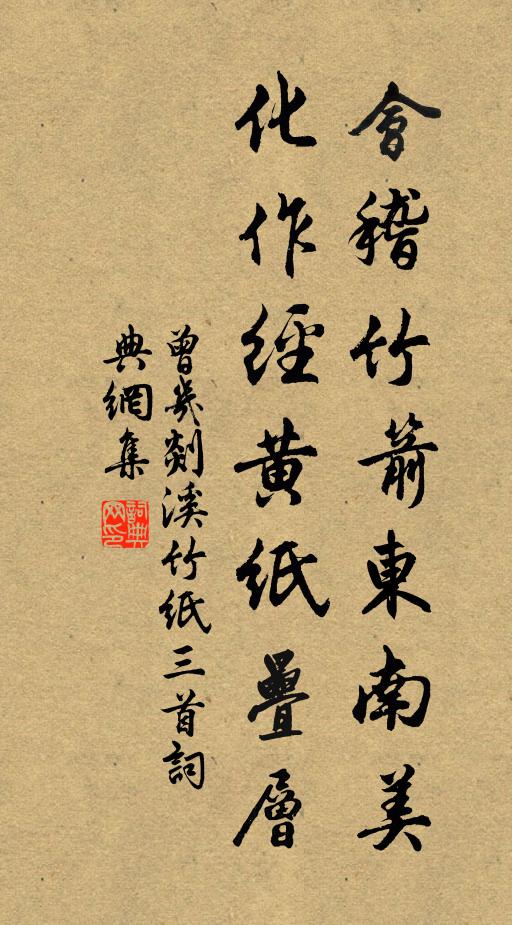 會稽竹箭東南美
化作經黃紙疊層
曾幾剡溪竹紙三首詞
典網集
詞典網印